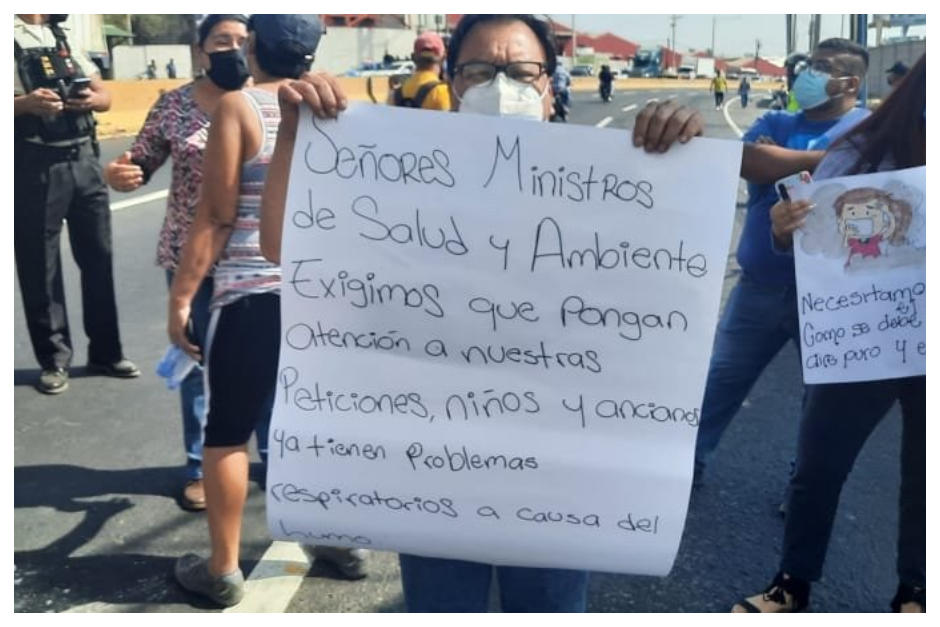 Señores Ministros
de Salud y Ambiente
Exigimos que Pongan
atención a nuestras
Peticiones, niños y ancianos
ya tienen Problemas
respiratorios a causa del
humo.
Necesitamo
el
Como se debe,
aire puro y e